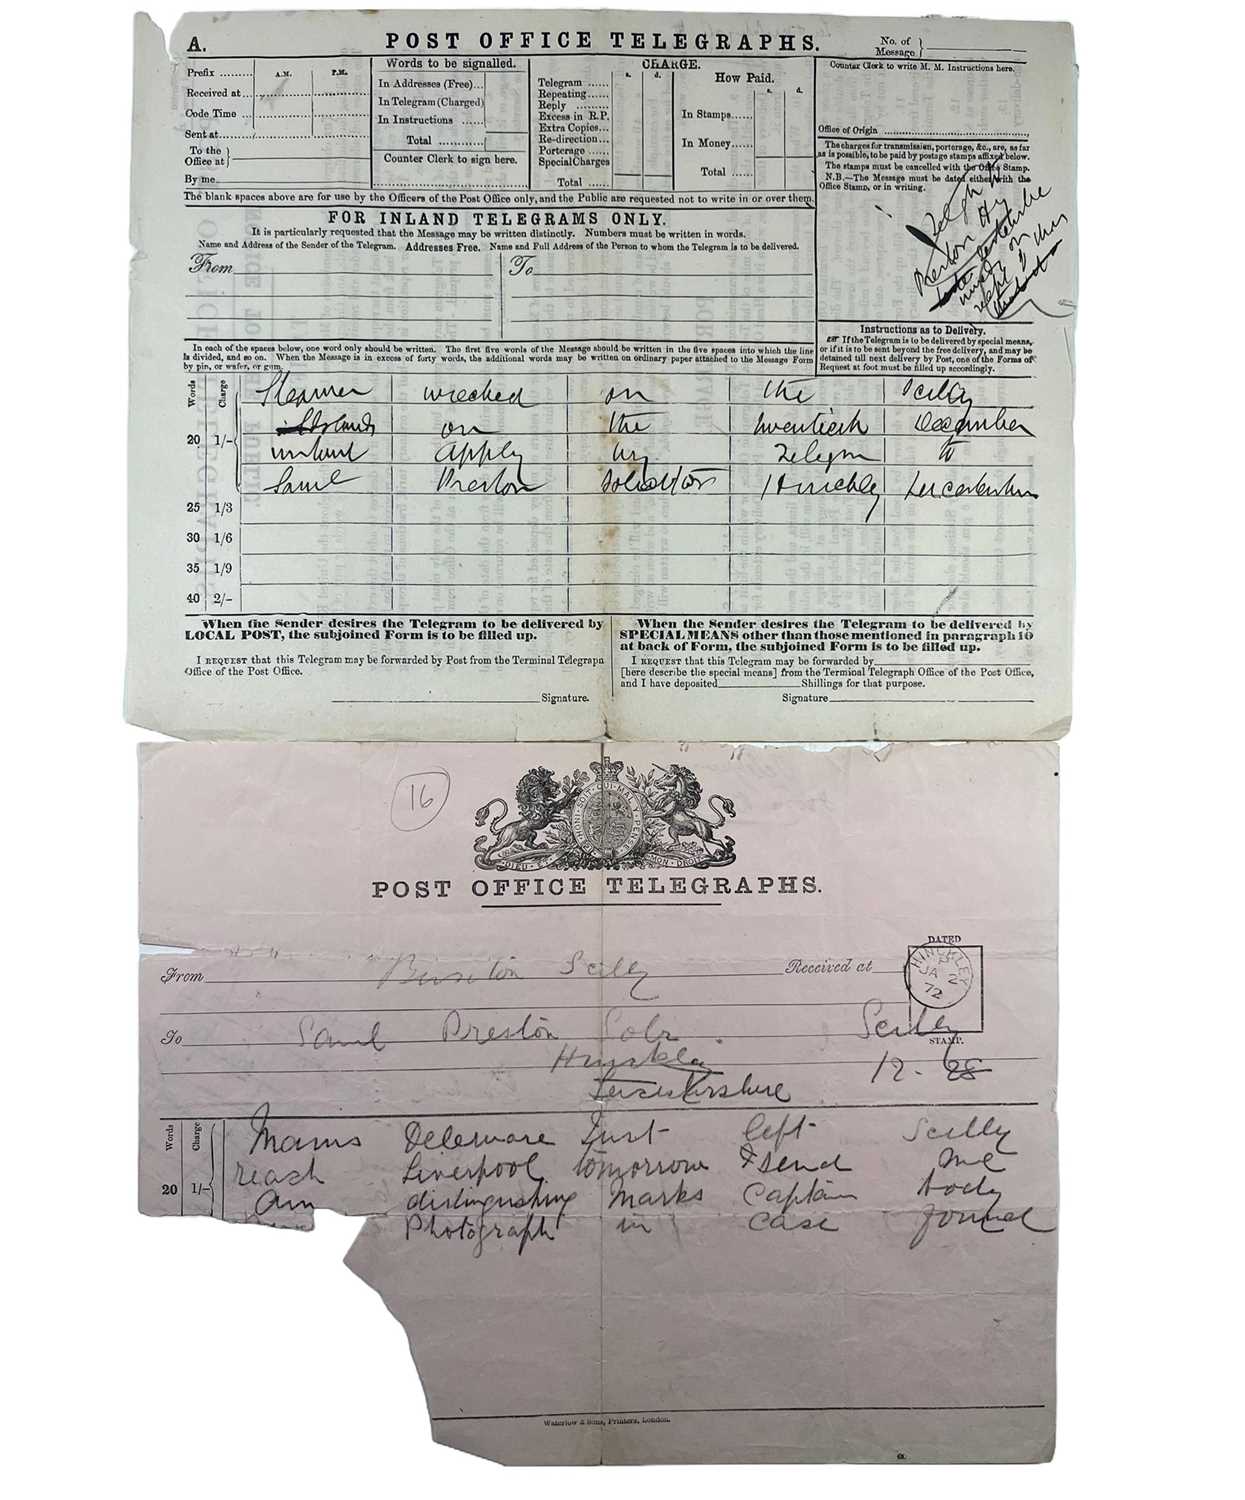 A. POST OFFICE TELEGRAPHS. No. of Message }
Prefix ........ A.M. P.M.
Received at ...
Code Time ...
Sent at ...
To the Office at }
By me
Words to be signalled.
In Addresses (Free)...
In Telegram (Charged)
In Instructions ......
Total ............
Counter Clerk to sign here.
CHARGE.
s. d.
Telegram ......
Repeating ......
Reply .........
Excess in R.P.
Extra Copies...
Re-direction...
Porterage ......
Special Charges
Total ......
How Paid.
s. d.
In Stamps......
In Money......
Total ......
Counter Clerk to write M. M. Instructions here.
Office of Origin
The charges for transmission, porterage, &c., are, as far
as is possible, to be paid by postage stamps affixed below.
The stamps must be cancelled with the Office Stamp.
N.B.—The Message must be dated either with the
Office Stamp, or in writing.
Preston Hy
on
The blank spaces above are for use by the Officers of the Post Office only, and the Public are requested not to write in or over them.
FOR INLAND TELEGRAMS ONLY.
It is particularly requested that the Message may be written distinctly. Numbers must be written in words.
Name and Address of the Sender of the Telegram. Addresses Free. Name and Full Address of the Person to whom the Telegram is to be delivered.
From To
Instructions as to Delivery.
If the Telegram is to be delivered by special means,
or if it is to be sent beyond the free delivery, and may be
detained till next delivery by Post, one of the Forms of
Request at foot must be filled up accordingly.
In each of the spaces below, one word only should be written. The first five words of the Message should be written in the five spaces into which the line
is divided, and so on. When the Message is in excess of forty words, the additional words may be written on ordinary paper attached to the Message Form
by pin, or wafer, or gum.
Words Charge
Steamer wrecked on the Scilly
Islands on the twentieth December
20 1/- instant apply by Telegm to
Saml Preston Solicitor Hinckley Leicestershire
25 1/3
30 1/6
35 1/9
40 2/-
When the Sender desires the Telegram to be delivered by
LOCAL POST, the subjoined Form is to be filled up.
I REQUEST that this Telegram may be forwarded by Post from the Terminal Telegraph
Office of the Post Office.
Signature.
When the Sender desires the Telegram to be delivered by
SPECIAL MEANS other than those mentioned in paragraph 16
at back of Form, the subjoined Form is to be filled up.
I REQUEST that this Telegram may be forwarded by
[here describe the special means] from the Terminal Telegraph Office of the Post Office,
and I have deposited Shillings for that purpose.
Signature
16
HONI SOIT QUI MAL Y PENSE
DIEU ET MON DROIT
POST OFFICE TELEGRAPHS.
DATED
HINCKLEY
P
JA 2
72
STAMP.
From Scilly Received at
To Saml Preston Solr Scilly
Hinckley 12 . 28
Leicestershire
Words Charge
Mams Delaware Just left Scilly
reach Liverpool tomorrow & send me
20 1/- Any distinguishing Marks Captain body
Photograph in case found
Waterlow & Sons, Printers, London.